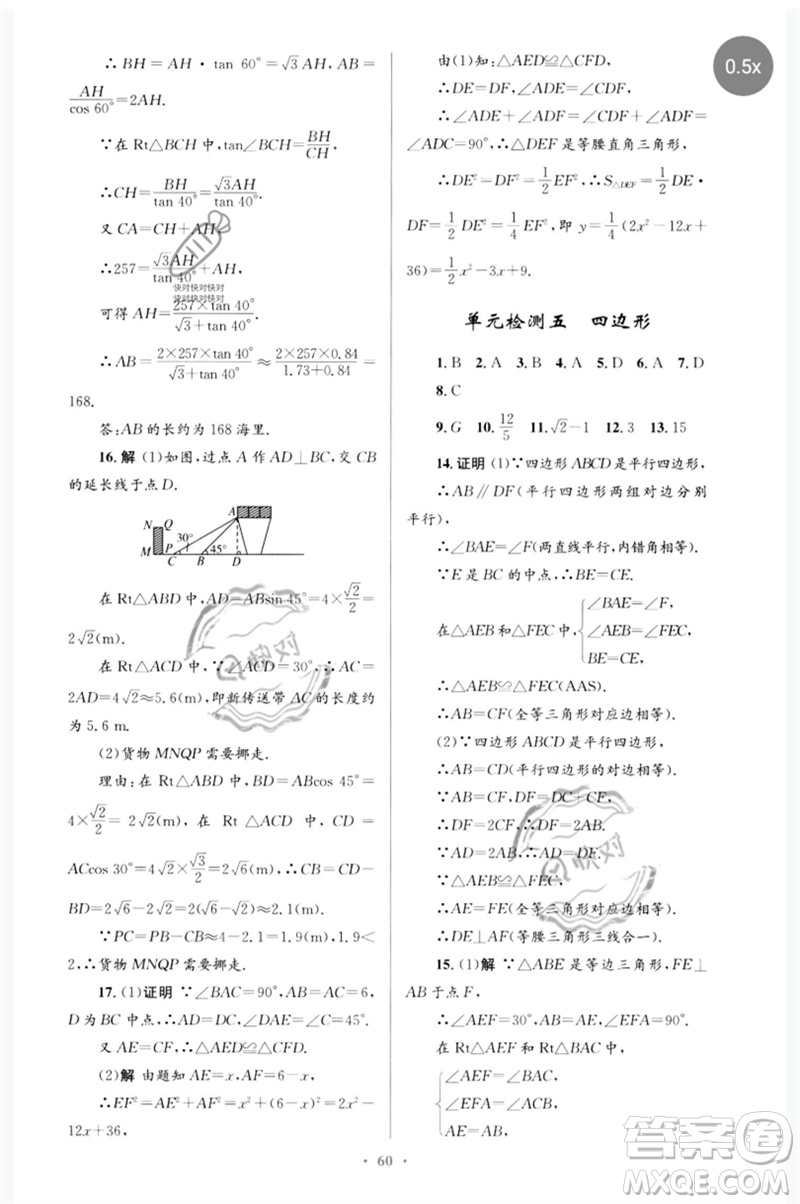 ∴BH=AH·tan 60°=√3AH,AB=
AH/cos 60°=2AH.
∵在 Rt△BCH 中,tan∠BCH=BH/CH,
∴CH=BH/tan 40°=√3AH/tan 40°.
又 CA=CH+AH,
∴257=√3AH/tan 40°+AH.
可得 AH=257×tan 40°/√3+tan 40°.
∴AB=2×257×tan 40°/√3+tan 40°≈2×257×0.84/1.73+0.84≈
168.
答:AB 的长约为 168 海里.
16.解 (1)如图,过点 A 作 AD⊥BC,交 CB
的延长线于点 D.
N Q A
30° 45°
M P C B D
在 Rt△ABD 中,AD=ABsin 45°=4×√2/2=
2√2(m).
在 Rt△ACD 中,∵∠ACD=30°,∴AC=
2AD=4√2≈5.6(m),即新传送带 AC 的长度约
为 5.6 m.
(2)货物 MNQP 需要挪走.
理由:在 Rt△ABD 中,BD=ABcos 45°=
4×√2/2=2√2(m),在 Rt△ACD 中,CD=
ACcos 30°=4√2×√3/2=2√6(m),∴CB=CD−
BD=2√6−2√2=2(√6−√2)≈2.1(m).
∵PC=PB−CB≈4−2.1=1.9(m),1.9<
2,∴货物 MNQP 需要挪走.
17.(1)证明 ∵∠BAC=90°,AB=AC=6,
D 为 BC 中点,∴∠BAD=∠DAC=∠C=45°.
又 AE=CF,∴△AED≌△CFD.
(2)解 由题知 AE=x,AF=6−x,
∴EF²=AE²+AF²=x²+(6−x)²=2x²−
12x+36,
由(1)知:△AED≌△CFD,
∴DE=DF,∠ADE=∠CDF,
∴∠ADE+∠ADF=∠CDF+∠ADF=
∠ADC=90°,∴△DEF 是等腰直角三角形,
∴DE²=DF²=1/2EF²,∴S△DEF=1/2DE·
DF=1/2DE²=1/4EF²,即 y=1/4(2x²−12x+
36)=1/2x²−3x+9.
单元检测五 四边形
1.B 2.A 3.B 4.A 5.D 6.A 7.D
8.C
9.G 10.12/5 11.√2−1 12.3 13.15
14.证明 (1)∵四边形 ABCD 是平行四边形,
∴AB∥DF(平行四边形两组对边分别
平行),
∴∠BAE=∠F(两直线平行,内错角相等).
∵E 是 BC 的中点,∴BE=CE.
在△AEB 和△FEC 中,{∠BAE=∠F,
∠AEB=∠FEC,
BE=CE,
∴△AEB≌△FEC(AAS).
∴AB=CF(全等三角形对应边相等).
(2)∵四边形 ABCD 是平行四边形,
∴AB=CD(平行四边形的对边相等).
∵AB=CF,DF=DC+CF,
∴DF=2CF,∴DF=2AB.
∵AD=2AB,∴AD=DF.
∵△AEB≌△FEC,
∴AE=FE(全等三角形对应边相等).
∴DE⊥AF(等腰三角形三线合一).
15.(1)解 ∵△ABE 是等边三角形,FE⊥
AB 于点 F,
∴∠AEF=30°,AB=AE,∠EFA=90°.
在 Rt△AEF 和 Rt△BAC 中,
{∠AEF=∠BAC,
∠EFA=∠ACB,
AE=AB,
· 60 ·
0.5x
快对快对快对
快对快对快对
快对
快对
答案卷
MXQE.COM